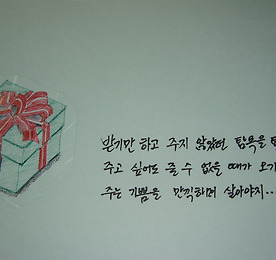 받기만 하고 주지 않았던 탐욕을
주고 싶어도 줄 수 없을 때가 오기
주는 기쁨을 만끽하며 살아야지..